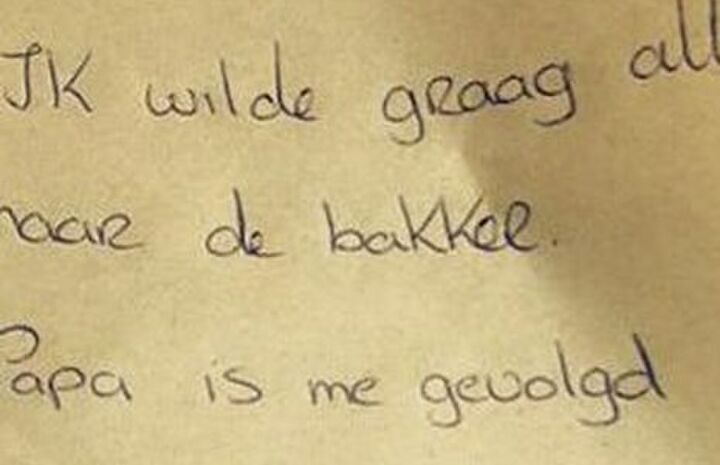 Ik wilde graag all
naar de bakker.
Papa is me gevolgd